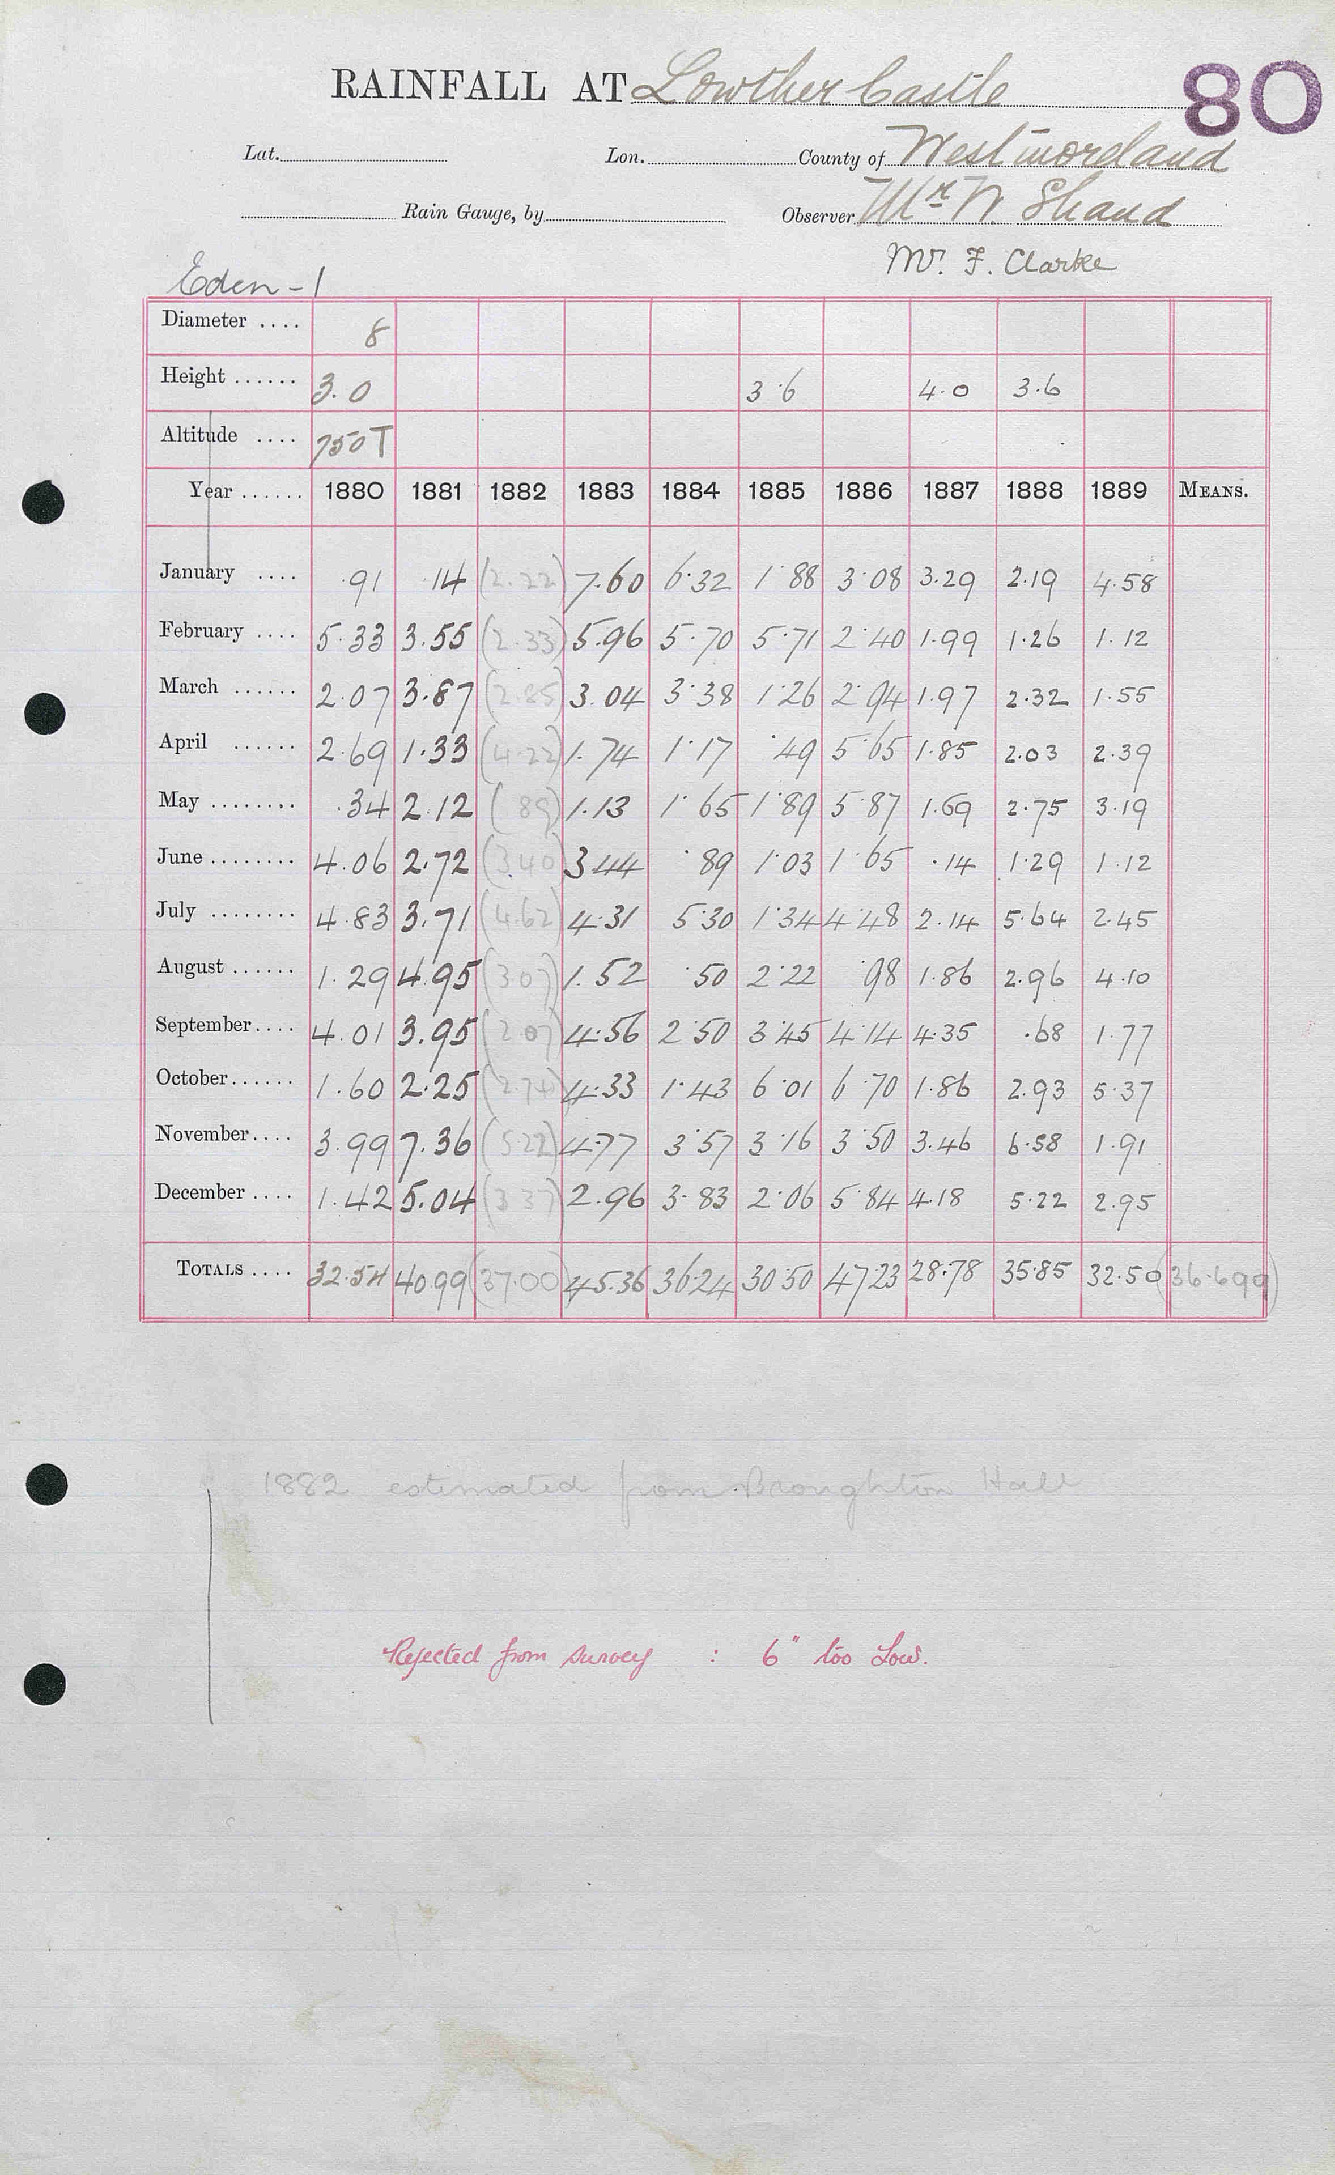 RAINFALL AT Lowther Castle 80
Lat. Lon. County of Westmoreland
Rain Gauge, by Observer Mr W Shand
Mr. F. Clarke
Eden - 1
Diameter .... 8
Height ...... 3.0 3.6 4.0 3.6
Altitude .... 750 T
Year ...... 1880 1881 1882 1883 1884 1885 1886 1887 1888 1889 MEANS.
January .... .91 .14 (2.22) 7.60 6.32 1.88 3.08 3.29 2.19 4.58
February .... 5.33 3.55 (2.33) 5.96 5.70 5.71 2.40 1.99 1.26 1.12
March ...... 2.07 3.87 (2.85) 3.04 3.38 1.26 2.94 1.97 2.32 1.55
April ...... 2.69 1.33 (4.22) 1.74 1.17 .49 5.65 1.85 2.03 2.39
May ........ .34 2.12 (.89) 1.13 1.65 1.89 5.87 1.69 2.75 3.19
June ........ 4.06 2.72 (3.40) 3.44 .89 1.03 1.65 .14 1.29 1.12
July ........ 4.83 3.71 (4.62) 4.31 5.30 1.34 4.48 2.14 5.64 2.45
August ...... 1.29 4.95 (3.07) 1.52 .50 2.22 .98 1.86 2.96 4.10
September.... 4.01 3.95 (2.07) 4.56 2.50 3.45 4.14 4.35 .68 1.77
October...... 1.60 2.25 (2.74) 4.33 1.43 6.01 6.70 1.86 2.93 5.37
November.... 3.99 7.36 (5.22) 4.77 3.57 3.16 3.50 3.46 6.58 1.91
December .... 1.42 5.04 (3.37) 2.96 3.83 2.06 5.84 4.18 5.22 2.95
TOTALS .... 32.54 40.99 (37.00) 45.36 36.24 30.50 47.23 28.78 35.85 32.50 (36.699)
1882 estimated from Broughton Hall
Rejected from survey : 6" too Low.